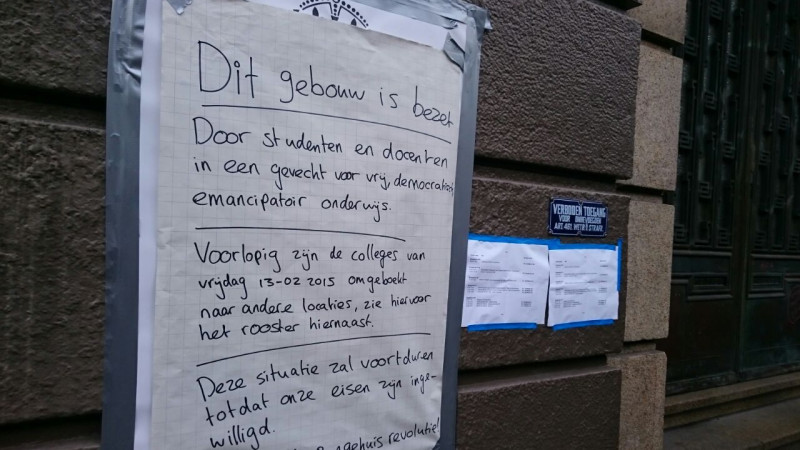 Dit gebouw is bezet
Door studenten en docenten
in een gevecht voor vrij, democratisch,
emancipatoir onderwijs.
Voorlopig zijn de colleges van
vrijdag 13-02 2015 omgeboekt
naar andere locaties, zie hiervoor
het rooster hiernaast.
Deze situatie zal voortduren
totdat onze eisen zijn inge-
willigd.
revolutie!
VERBODEN TOEGANG
VOOR ONBEVOEGDEN
ART. 461. WETB. V. STRAFR.